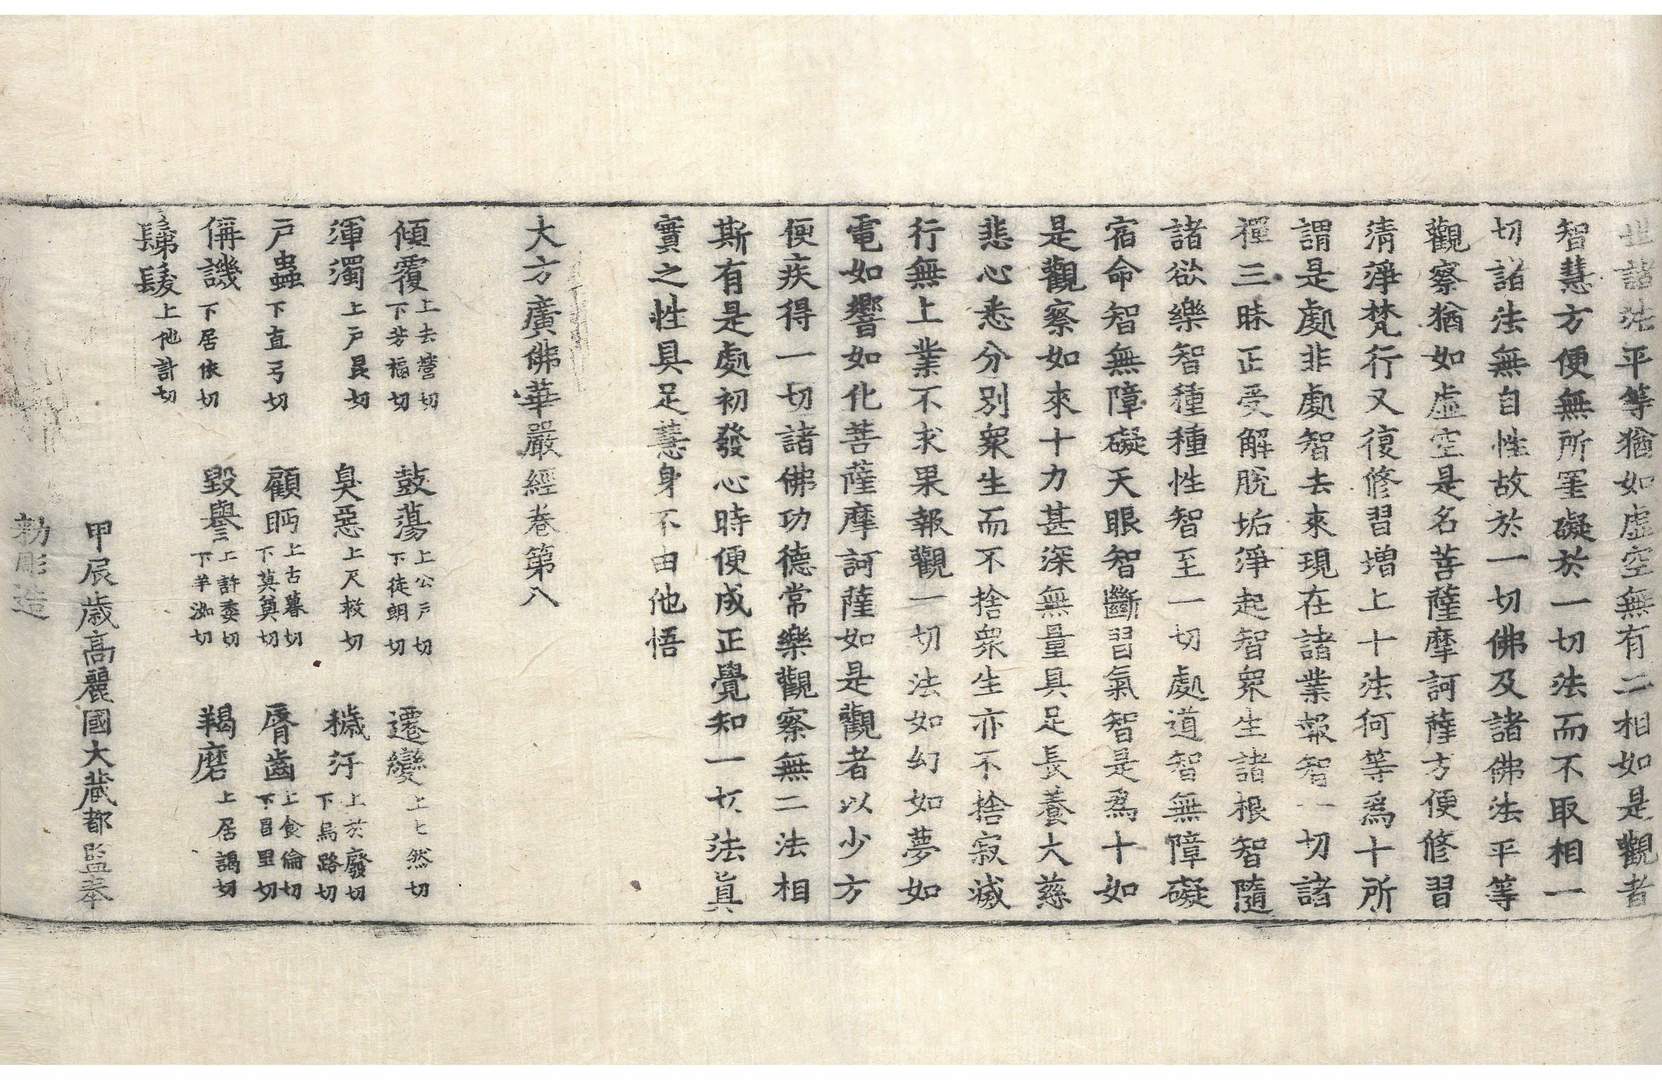 世諸法平等猶如虛空無有二相如是觀者
智慧方便無所罣礙於一切法而不取相一
切諸法無自性故於一切佛及諸佛法平等
觀察猶如虛空是名菩薩摩訶薩方便修習
清淨梵行又復修習增上十法何等為十所
謂是處非處智去來現在諸業報智一切諸
禪三昧正受解脫垢淨起智衆生諸根智隨
諸欲樂智種種性智至一切處道智無障礙
宿命智無障礙天眼智斷習氣智是為十如
是觀察如來十力甚深無量具足長養大慈
悲心悉分別衆生而不捨衆生亦不捨寂滅
行無上業不求果報觀一切法如幻如夢如
電如響如化菩薩摩訶薩如是觀者以少方
便疾得一切諸佛功德常樂觀察無二法相
斯有是處初發心時便成正覺知一切法眞
實之性具足慧身不由他悟
大方廣佛華嚴經卷第八
傾覆上去營切下芳福切 鼓蕩上公戶切下徒朗切 遷變上七然切
渾濁上戶昆切 臭惡上尺救切 穢汙上於廢切下烏路切
戶蟲下直弓切 顧眄上古暮切下莫莫切 脣齒上食倫切下昌里切
俻譏下居依切 毀譽上許委切下羊洳切 羯磨上居謁切
髢髮上他計切
甲辰歲高麗國大藏都監奉
勑彫造